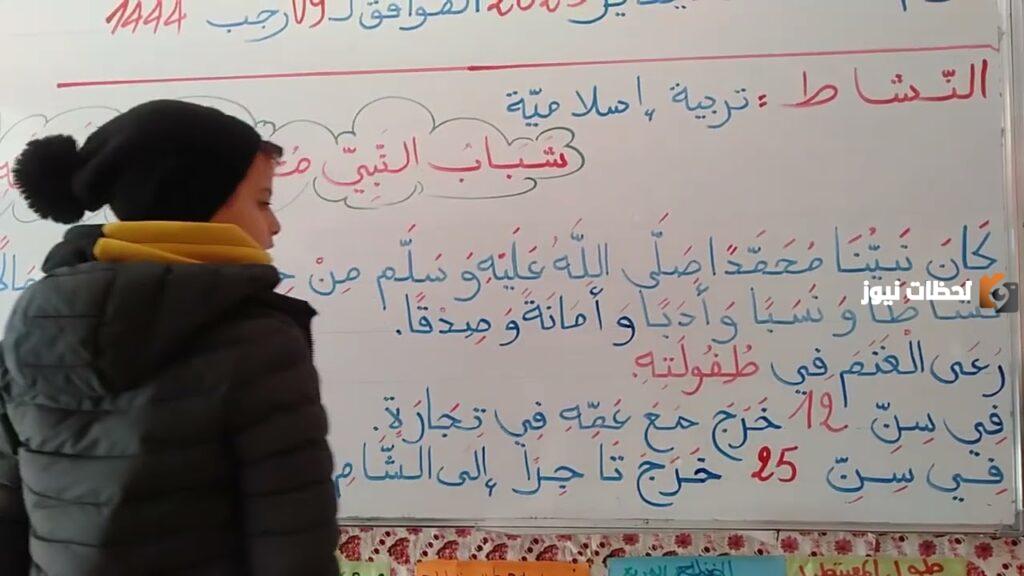 2023 الموافق لـ 09 رجب 1444
النّشاط : تربية إسلاميّة
شَبَابُ النَّبِيّ
كَانَ نَبِيُّنَا مُحَمَّدًا صَلَّى اللَّهُ عَلَيْهِ وَسَلَّم مِنْ
نَشَاطًا وَ نَسَبًا وَ أَدَبًا وَ أَمَانَةً وَ صِدْقًا.
رَعَى الْغَنَمَ فِي طُفُولَتِهِ.
فِي سِنّ 12 خَرَجَ مَعَ عَمِّهِ فِي تِجَارَةٍ.
فِي سِنِّ 25 خَرَجَ تَاجِرًا إلى الشَّامِ
لحظات نيوز